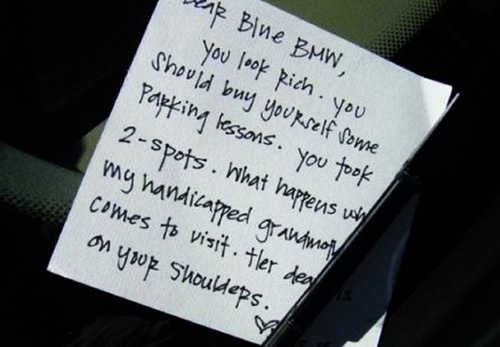 Dear Blue BMW,
You look rich. You
should buy yourself some
Parking lessons. You took
2-spots. What happens
my handicapped
comes to visit. Her
on your shoulders.
is